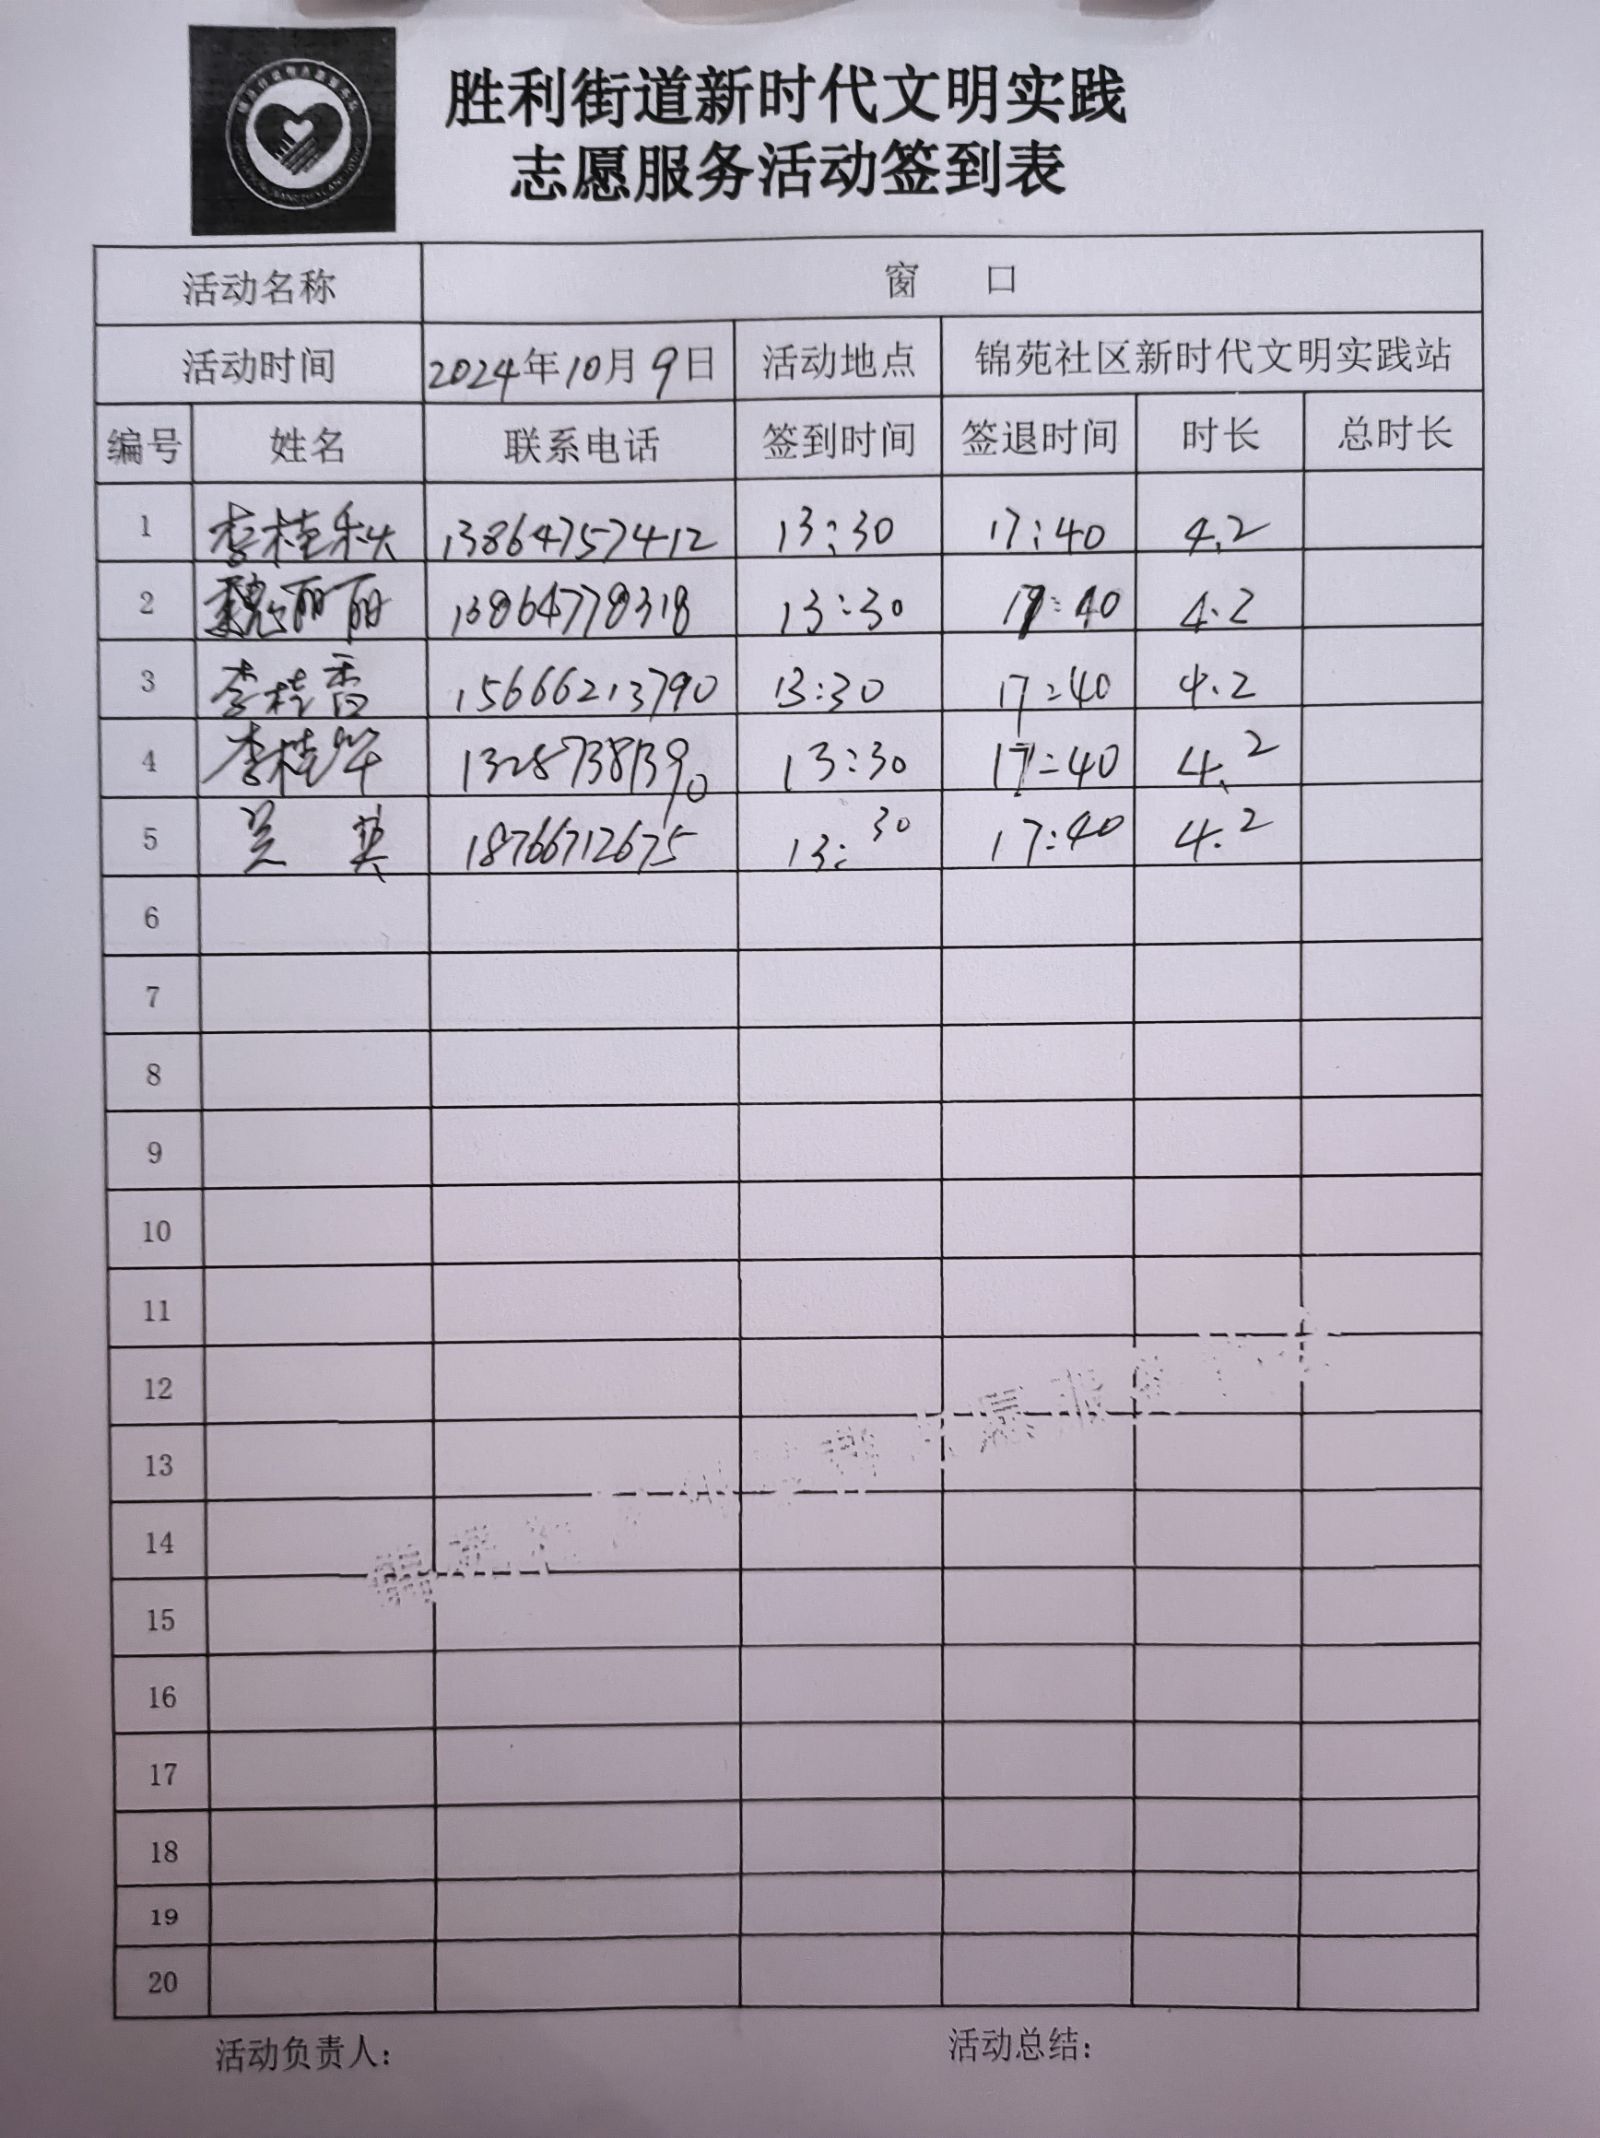 胜利街道新时代文明实践
志愿服务活动签到表
活动名称 窗 口
活动时间 2024年10月9日 活动地点 锦苑社区新时代文明实践站
编号 姓名 联系电话 签到时间 签退时间 时长 总时长
1 李桂秋 13864757412 13:30 17:40 4.2
2 魏丽丽 13864778318 13:30 17:40 4.2
3 李桂香 15666213790 13:30 17:40 4.2
4 李桂华 13287381390 13:30 17:40 4.2
5 吴英 18766712675 13:30 17:40 4.2
6
7
8
9
10
11
12
13
14
15
16
17
18
19
20
活动负责人: 活动总结: